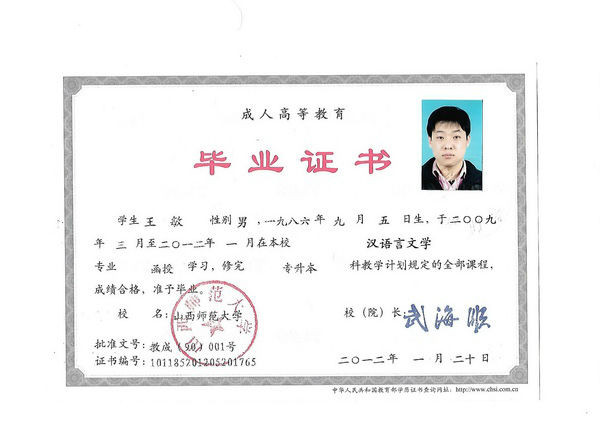 成人高等教育
毕业证书
学生 王敏 性别 男，一九八六年 九 月 五 日生，于二〇〇九
年 三 月至二〇一二年 一 月在本校 汉语言文学
专业 函授 学习，修完 专升本 科教学计划规定的全部课程，
成绩合格，准予毕业。
校 名：山西师范大学 校（院）长：武海顺
批准文号：教成（90）001号
证书编号：101185201205201765 二〇一二年 一 月 二十 日
中华人民共和国教育部学历证书查询网址：http://www.chsi.com.cn